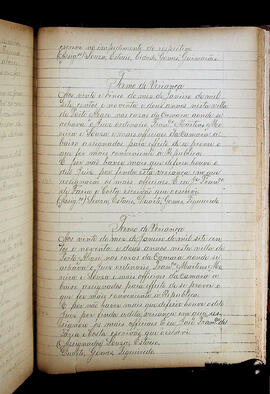 escrevo no impedimento do respectivo
(Assignº) Souza, Estacio, Cidade, Gomes, Guimarães
Termo de Veriança
Aos vinte e cinco do mez de Janeiro de mil
sete centos e noventa e dous annos nesta villa
de Porto Alegre nas casas da Camara aonde se
achava o Juiz ordinario Franº Martins Mo
reira e Souza e mais officiaes da Camara a
baixo assignados para effeito de se prover o
que for mais conveniente a Republica.
E por não haver mais que deferir houve o
dito Juiz por finda esta veriança em que
assignarão os mais officiaes E eu José Franº
de Faria e Costa escrivão que escrevi
(Assignº) Souza, Estacio, Gomes, Figueiredo
Termo de Veriança
Aos vinte do mez de Janeiro de mil sete cen
tos e noventa e dous annos nesta villa de
Porto Alegre nas casas da Camara aonde se
achava o Juiz ordinario Franº Martins Mo
reira e Souza e mais officiaes da Camara a
baixo assignados para effeito de se prover o
que for mais conveniente a Republica.
E por não haver mais que deferir houve o dito
Juiz por finda a dita veriança em que as
signarão os mais officiaes E eu José Franº de
Faria e Costa escrivão que escrevi
(Assignados) Souza, Estacio,
Gomes, Figueiredo